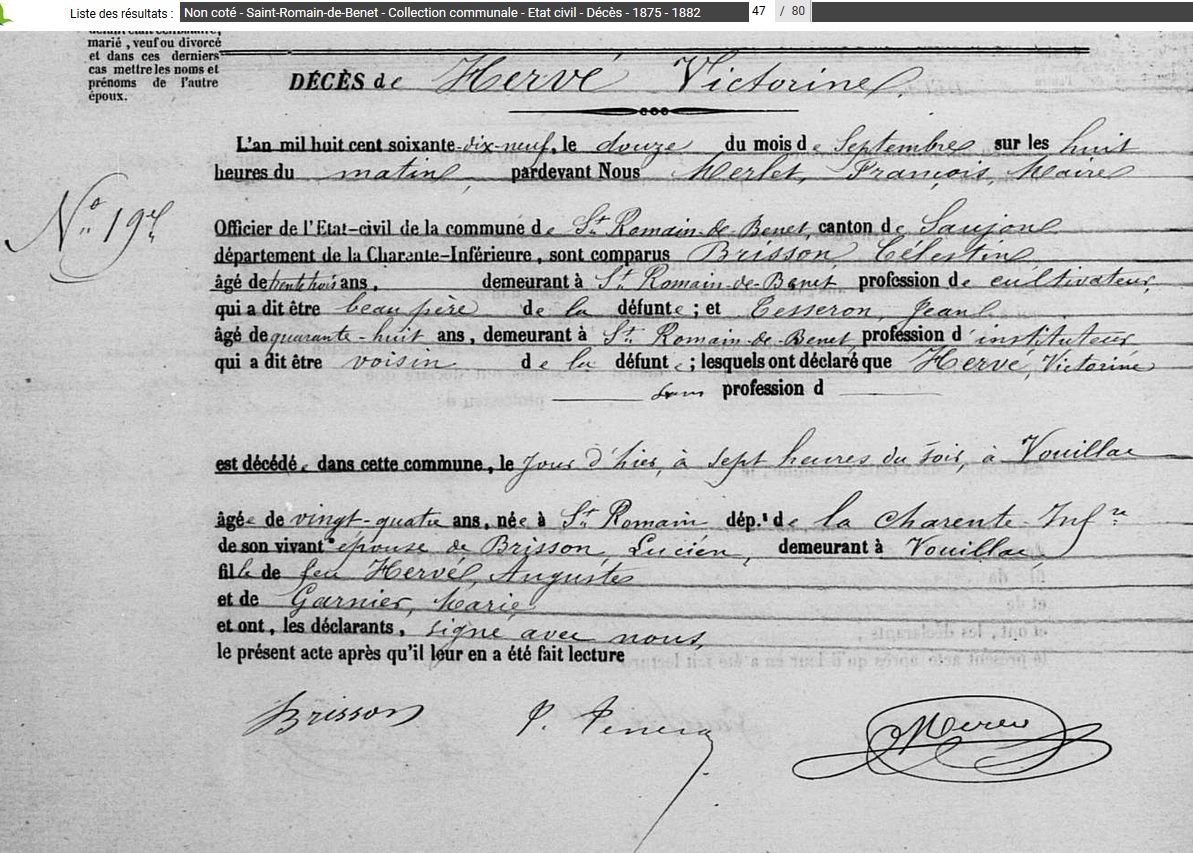 Liste des résultats : Non coté - Saint-Romain-de-Benet - Collection communale - Etat civil - Décès - 1875 - 1882 47 / 80
marié, veuf ou divorcé
et dans ces derniers
cas mettre les noms et
prénoms de l'autre
époux.
DÉCÈS de Hervé Victorine
L'an mil huit cent soixante-dix-neuf, le douze du mois de Septembre sur les huit
heures du matin, pardevant Nous Merlet, François, Maire
N° 19
Officier de l'Etat-civil de la commune de St Romain-de-Benet, canton de Saujon
département de la Charante-Inférieure, sont comparus Brisson Célestin
âgé de trente trois ans, demeurant à St Romain-de-Benet profession de cultivateur,
qui a dit être beau père de la défunte ; et Tesseron, Jean
âgé de quarante-huit ans, demeurant à St Romain-de-Benet profession d'instituteur
qui a dit être voisin de la défunte ; lesquels ont déclaré que Hervé, Victorine
sans profession d
est décédée dans cette commune, le jour d'hier, à sept heures du soir, à Vouillac
âgée de vingt-quatre ans, née à St Romain dép.t de la Charente Infre
de son vivant épouse de Brisson, Lucien, demeurant à Vouillac
fille de feu Hervé, Auguste
et de Garnier, Marie
et ont, les déclarants, signé avec nous,
le présent acte après qu'il leur en a été fait lecture
Brisson